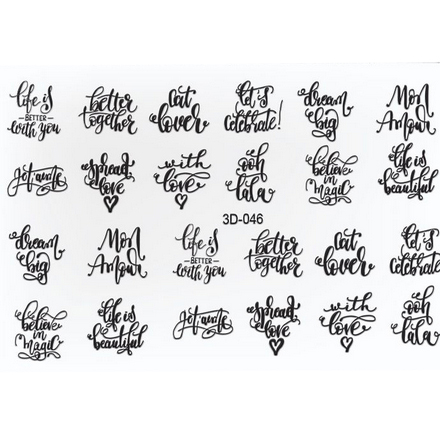 life is
BETTER
with you
better
together
cat
lover
let's
celebrate!
dream
big
Mon
Amour
spread
love
with
love
ooh
lala
believe
in
magic
life is
beautiful
3D-046
dream
big
Mon
Amour
life is
BETTER
with you
better
together
cat
lover
let's
celebrate
believe
in
magic
life is
beautiful
spread
love
with
love
ooh
lala